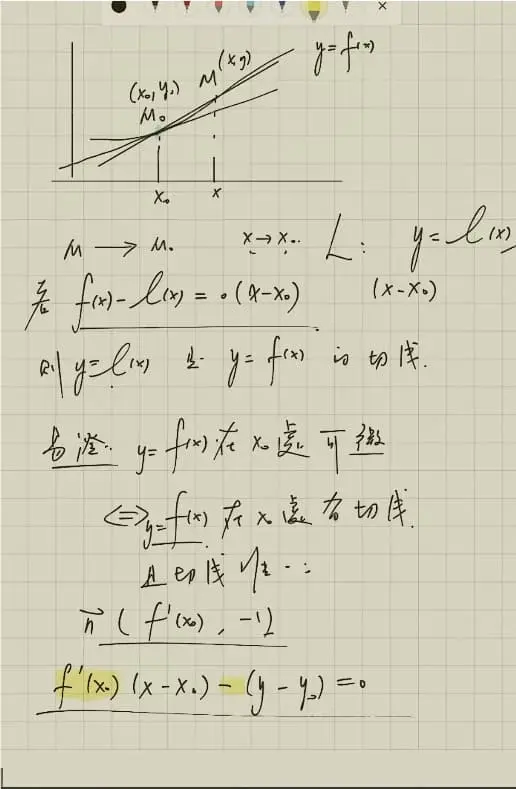 y=f(x)
(x,y)
M
(x₀,y₀)
M₀
x₀ x
M → M₀ x→x₀. L: y=l(x)
若 f(x)-l(x)=o(x-x₀) (x-x₀)
则 y=l(x) 是 y=f(x) 的切线.
易證: y=f(x) 在 x₀ 處 可微
⇔ y=f(x) 在 x₀ 處 有切线.
且切线
n⃗ (f'(x₀), -1)
f'(x₀)(x-x₀)-(y-y₀)=0